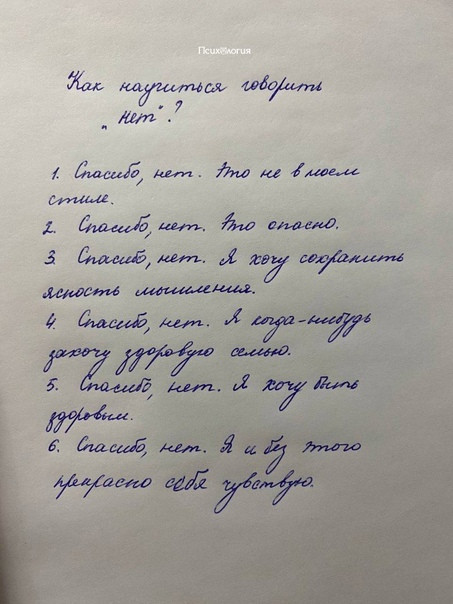 Псих☮логия
Как научиться говорить
„нет"?
1. Спасибо, нет. Это не в моём
стиле.
2. Спасибо, нет. Это опасно.
3. Спасибо, нет. Я хочу сохранить
ясность мышления.
4. Спасибо, нет. Я когда-нибудь
захочу здоровую семью.
5. Спасибо, нет. Я хочу быть
здоровым.
6. Спасибо, нет. Я и без этого
прекрасно себя чувствую.